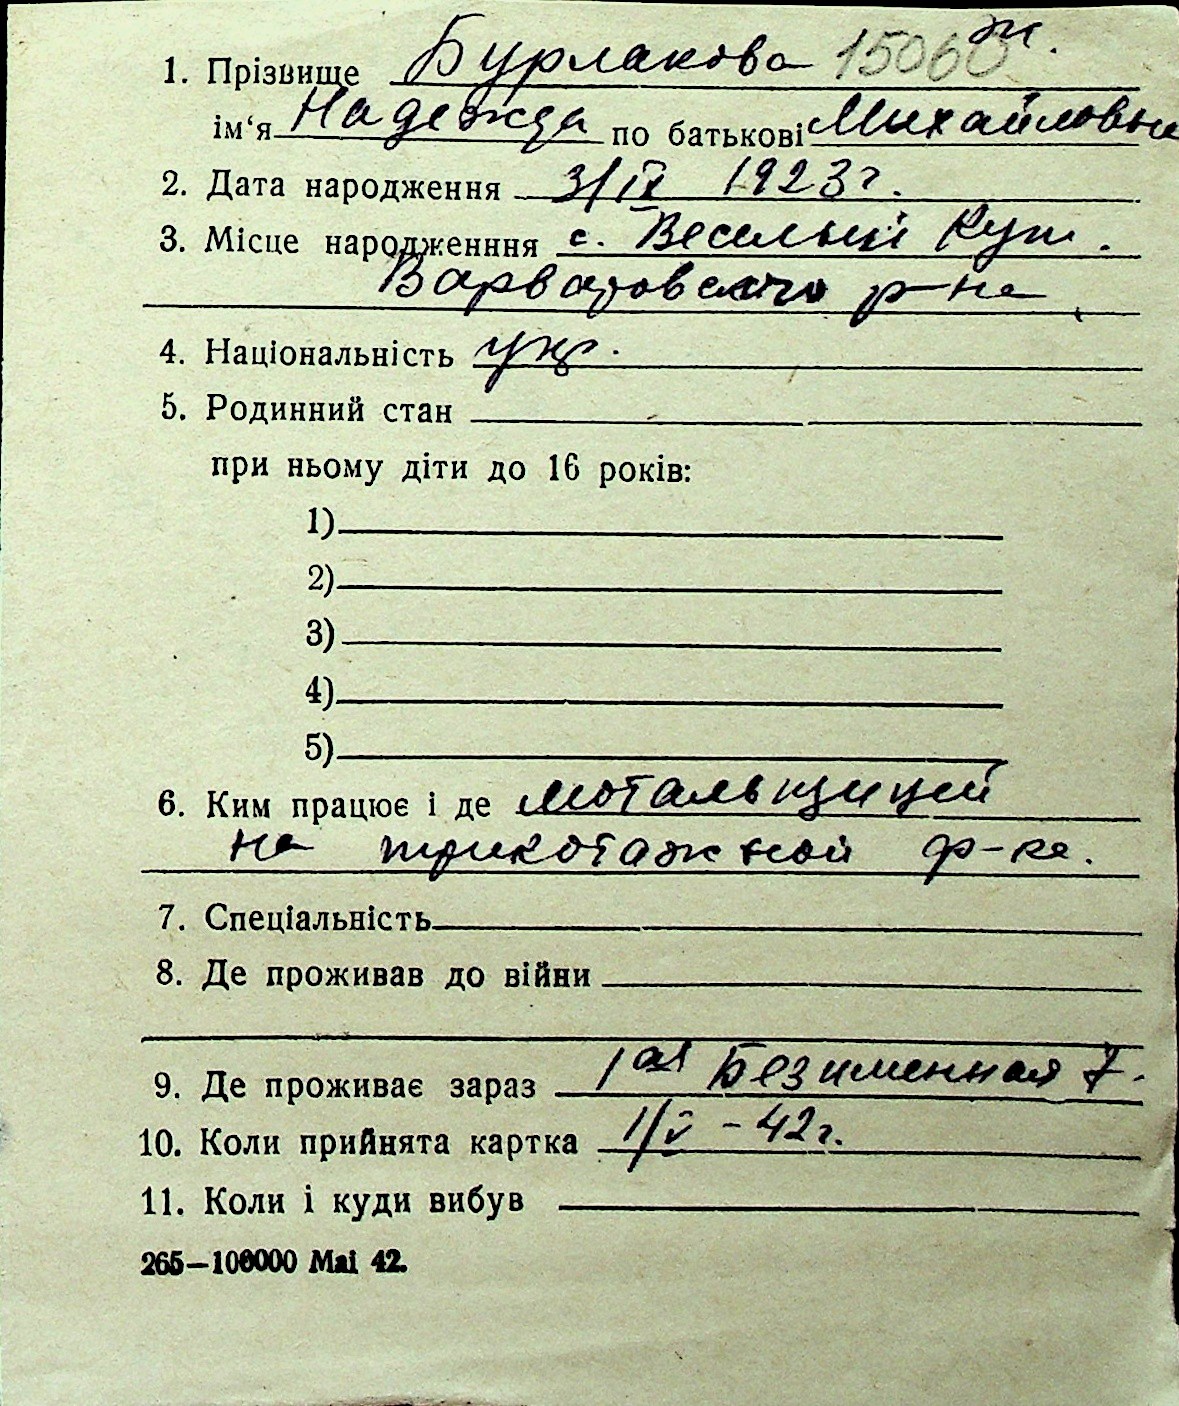 1. Прізвище Бурлакова 15060 ж.
ім‘я Надежда по батькові Михайловна
2. Дата народження 3/IX 1923 г.
3. Місце народженння с. Веселый Кут.
Варваровского р-на
4. Національність укр.
5. Родинний стан
при ньому діти до 16 років:
1)
2)
3)
4)
5)
6. Ким працює і де мотальщицей
на трикотажной ф-ке.
7. Спеціальність
8. Де проживав до війни
9. Де проживає зараз 1ая Безименная 7.
10. Коли прийнята картка 1/V - 42 г.
11. Коли і куди вибув
265—100000 Mai 42.